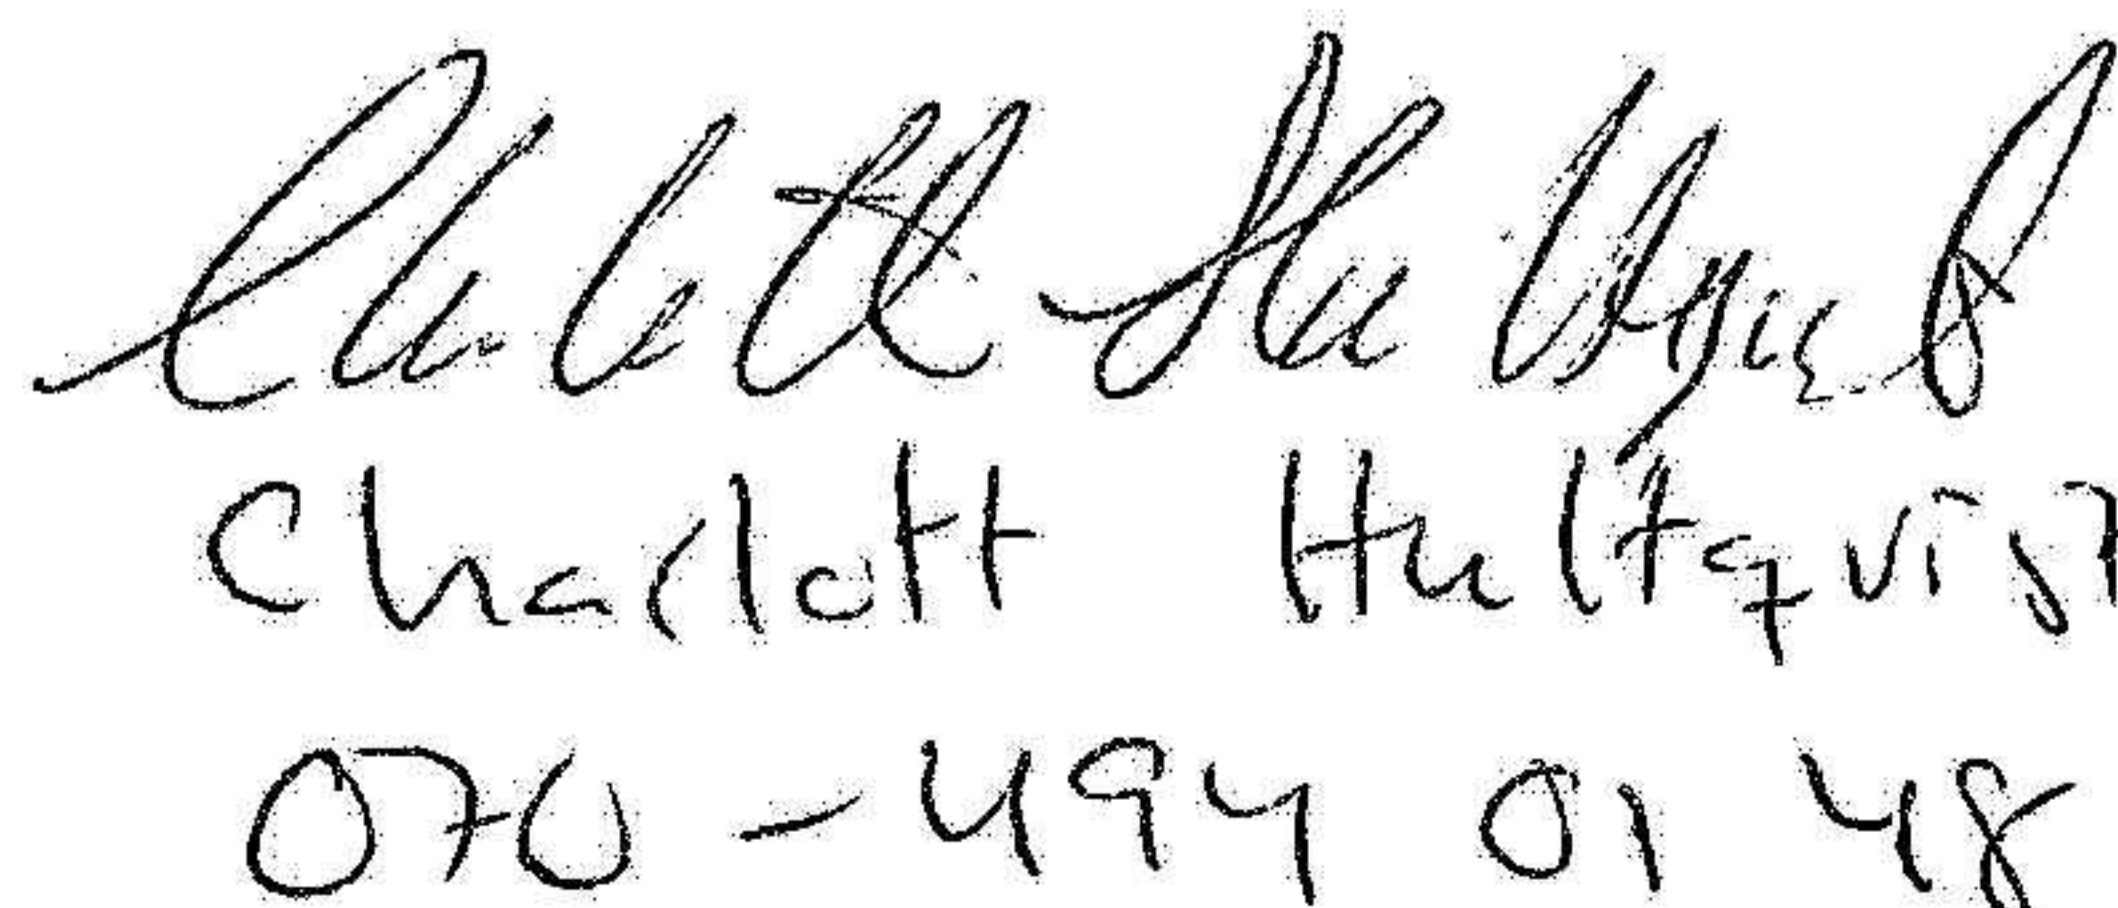 Charlott Hultqvist
Charlott Hultqvist
070-494 01 48